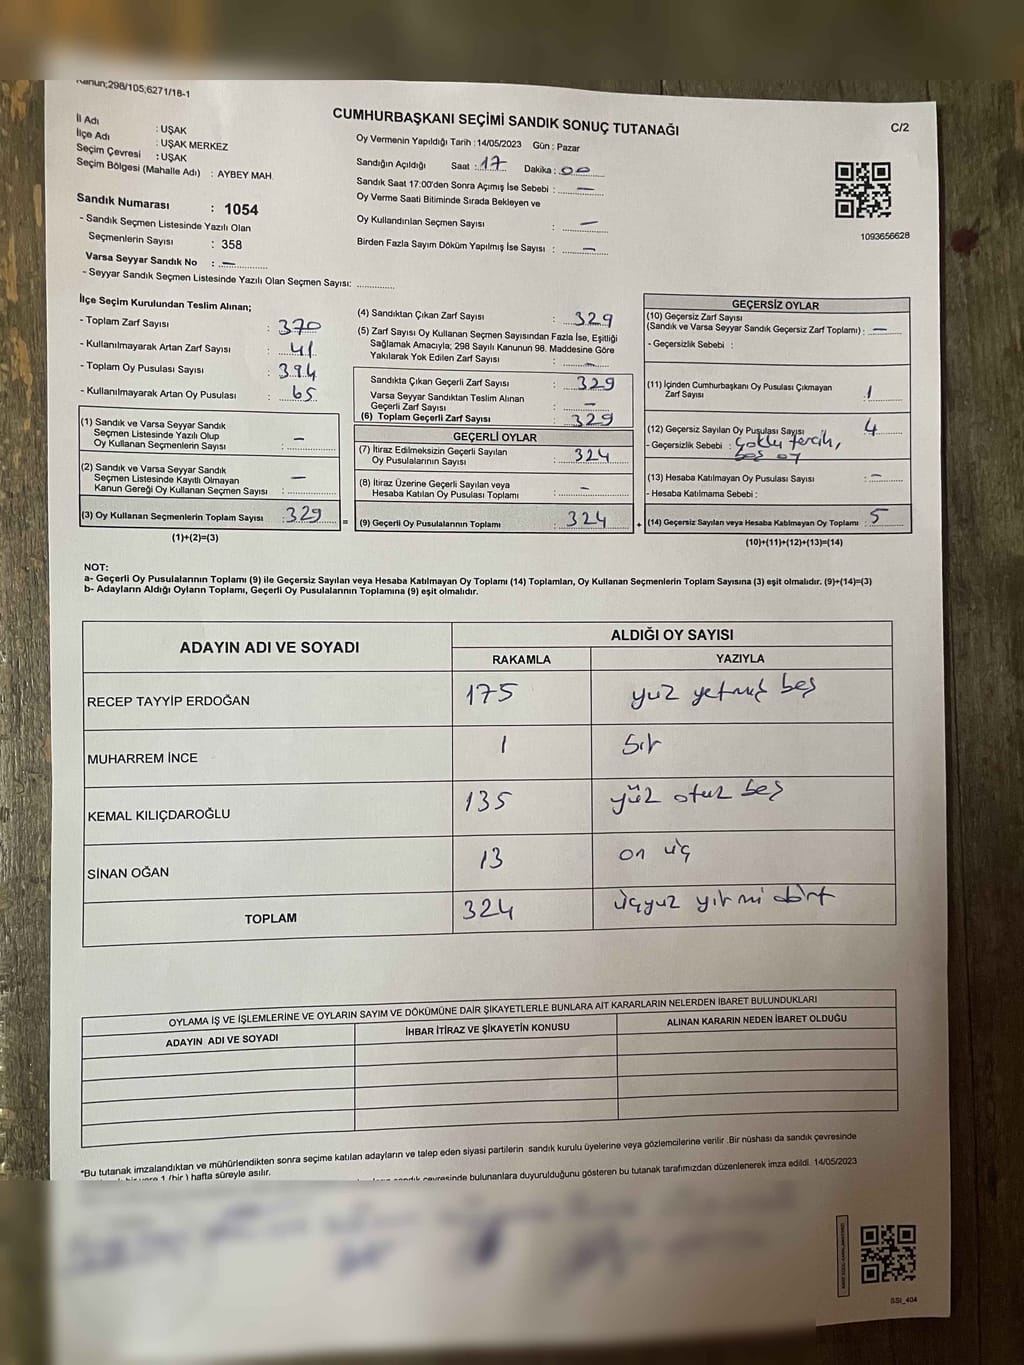 Kanun;298/105,6271/18-1
CUMHURBAŞKANI SEÇİMİ SANDIK SONUÇ TUTANAĞI
C/2
İl Adı : UŞAK
İlçe Adı : UŞAK MERKEZ
Seçim Çevresi : UŞAK
Seçim Bölgesi (Mahalle Adı) : AYBEY MAH.
Oy Vermenin Yapıldığı Tarih :14/05/2023 Gün : Pazar
Sandığın Açıldığı Saat : 17 Dakika : 00
Sandık Saat 17:00'den Sonra Açımış İse Sebebi : —
Oy Verme Saati Bitiminde Sırada Bekleyen ve
Oy Kullandırılan Seçmen Sayısı : —
Birden Fazla Sayım Döküm Yapılmış İse Sayısı : —
1093656628
Sandık Numarası : 1054
- Sandık Seçmen Listesinde Yazılı Olan
Seçmenlerin Sayısı : 358
Varsa Seyyar Sandık No : —
- Seyyar Sandık Seçmen Listesinde Yazılı Olan Seçmen Sayısı:
İlçe Seçim Kurulundan Teslim Alınan;
- Toplam Zarf Sayısı : 370
- Kullanılmayarak Artan Zarf Sayısı : 41
- Toplam Oy Pusulası Sayısı : 394
- Kullanılmayarak Artan Oy Pusulası : 65
(1) Sandık ve Varsa Seyyar Sandık
Seçmen Listesinde Yazılı Olup
Oy Kullanan Seçmenlerin Sayısı : —
(2) Sandık ve Varsa Seyyar Sandık
Seçmen Listesinde Kayıtlı Olmayan
Kanun Gereği Oy Kullanan Seçmen Sayısı : —
(3) Oy Kullanan Seçmenlerin Toplam Sayısı : 329 =
(1)+(2)=(3)
(4) Sandıktan Çıkan Zarf Sayısı : 329
(5) Zarf Sayısı Oy Kullanan Seçmen Sayısından Fazla İse, Eşitliği
Sağlamak Amacıyla; 298 Sayılı Kanunun 98. Maddesine Göre
Yakılarak Yok Edilen Zarf Sayısı : —
Sandıkta Çıkan Geçerli Zarf Sayısı : 329
Varsa Seyyar Sandıktan Teslim Alınan
Geçerli Zarf Sayısı : —
(6) Toplam Geçerli Zarf Sayısı : 329
GEÇERLİ OYLAR
(7) İtiraz Edilmeksizin Geçerli Sayılan
Oy Pusulalarının Sayısı : 324
(8) İtiraz Üzerine Geçerli Sayılan veya
Hesaba Katılan Oy Pusulası Toplamı : —
(9) Geçerli Oy Pusulalarının Toplamı : 324 +
GEÇERSİZ OYLAR
(10) Geçersiz Zarf Sayısı
(Sandık ve Varsa Seyyar Sandık Geçersiz Zarf Toplamı) : —
- Geçersizlik Sebebi :
(11) İçinden Cumhurbaşkanı Oy Pusulası Çıkmayan
Zarf Sayısı : 1
(12) Geçersiz Sayılan Oy Pusulası Sayısı : 4
- Geçersizlik Sebebi : çoklu tercih,
boş oy
(13) Hesaba Katılmayan Oy Pusulası Sayısı : —
- Hesaba Katılmama Sebebi :
(14) Geçersiz Sayılan veya Hesaba Katılmayan Oy Toplamı : 5
(10)+(11)+(12)+(13)=(14)
NOT:
a- Geçerli Oy Pusulalarının Toplamı (9) ile Geçersiz Sayılan veya Hesaba Katılmayan Oy Toplamı (14) Toplamları, Oy Kullanan Seçmenlerin Toplam Sayısına (3) eşit olmalıdır. (9)+(14)=(3)
b- Adayların Aldığı Oyların Toplamı, Geçerli Oy Pusulalarının Toplamına (9) eşit olmalıdır.
ADAYIN ADI VE SOYADI
ALDIĞI OY SAYISI
RAKAMLA YAZIYLA
RECEP TAYYİP ERDOĞAN 175 yüz yetmiş beş
MUHARREM İNCE 1 bir
KEMAL KILIÇDAROĞLU 135 yüz otuz beş
SİNAN OĞAN 13 on üç
TOPLAM 324 üçyüz yirmi dört
OYLAMA İŞ VE İŞLEMLERİNE VE OYLARIN SAYIM VE DÖKÜMÜNE DAİR ŞİKAYETLERLE BUNLARA AİT KARARLARIN NELERDEN İBARET BULUNDUKLARI
ADAYIN ADI VE SOYADI İHBAR İTİRAZ VE ŞİKAYETİN KONUSU ALINAN KARARIN NEDEN İBARET OLDUĞU
*Bu tutanak imzalandıktan ve mühürlendikten sonra seçime katılan adayların ve talep eden siyasi partilerin sandık kurulu üyelerine veya gözlemcilerine verilir .Bir nüshası da sandık çevresinde
1 (bir ) hafta süreyle asılır.
sandık çevresinde bulunanlara duyurulduğunu gösteren bu tutanak tarafımızdan düzenlenerek imza edildi. 14/05/2023
SSI_404